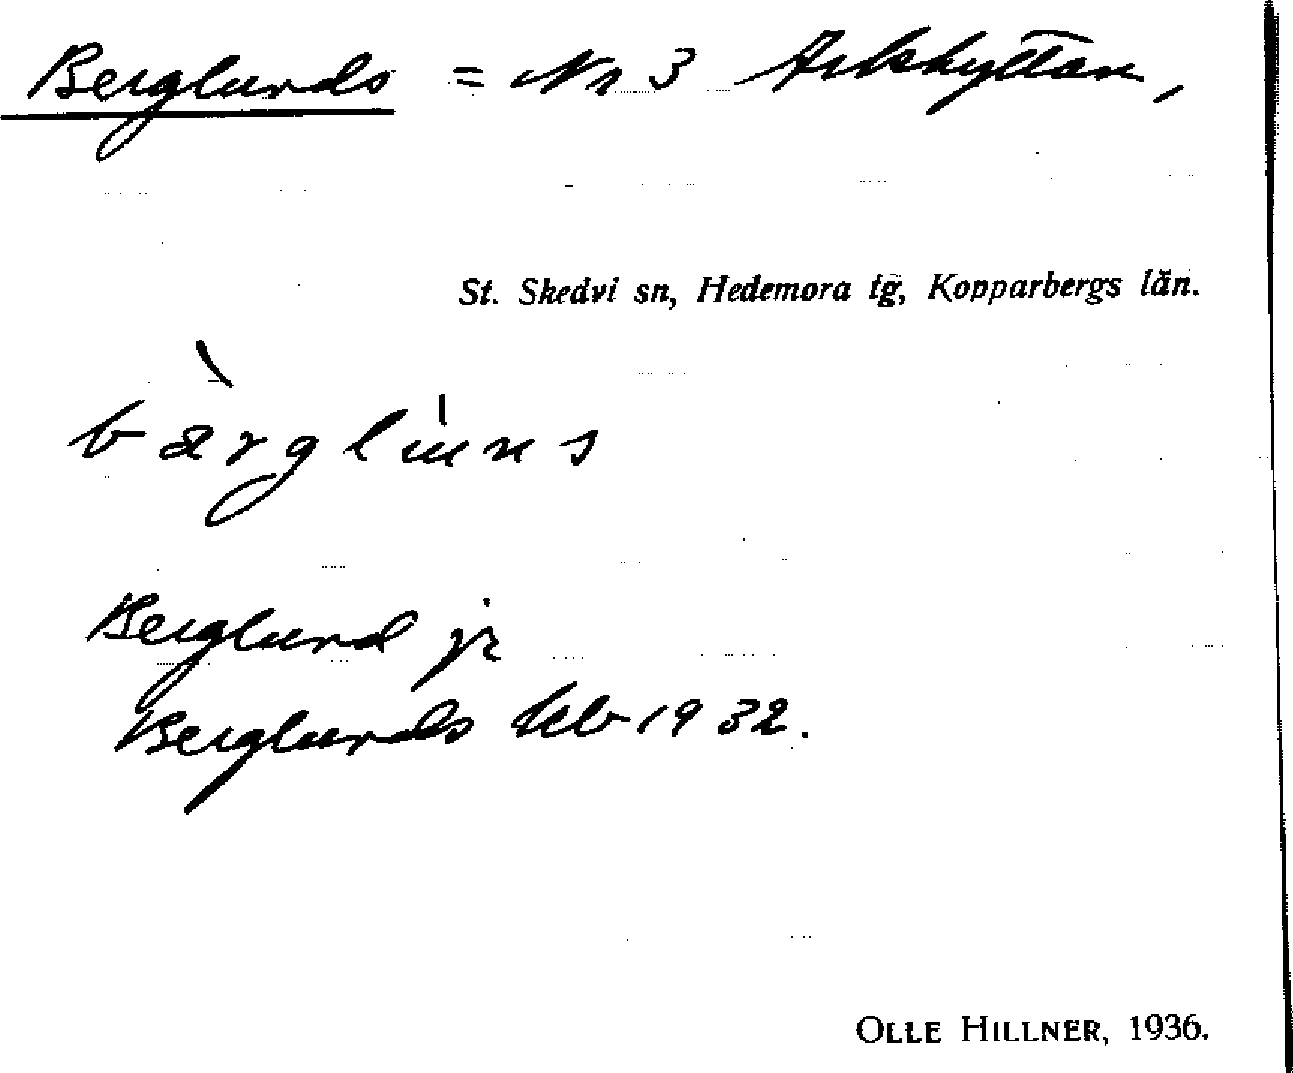 Berglunds = Nr 3 Arkhyttan,
St. Skedvi sn, Hedemora tg, Kopparbergs län.
bærglunns
Berglund jr
Berglunds kb 1932.
OLLE HILLNER, 1936.